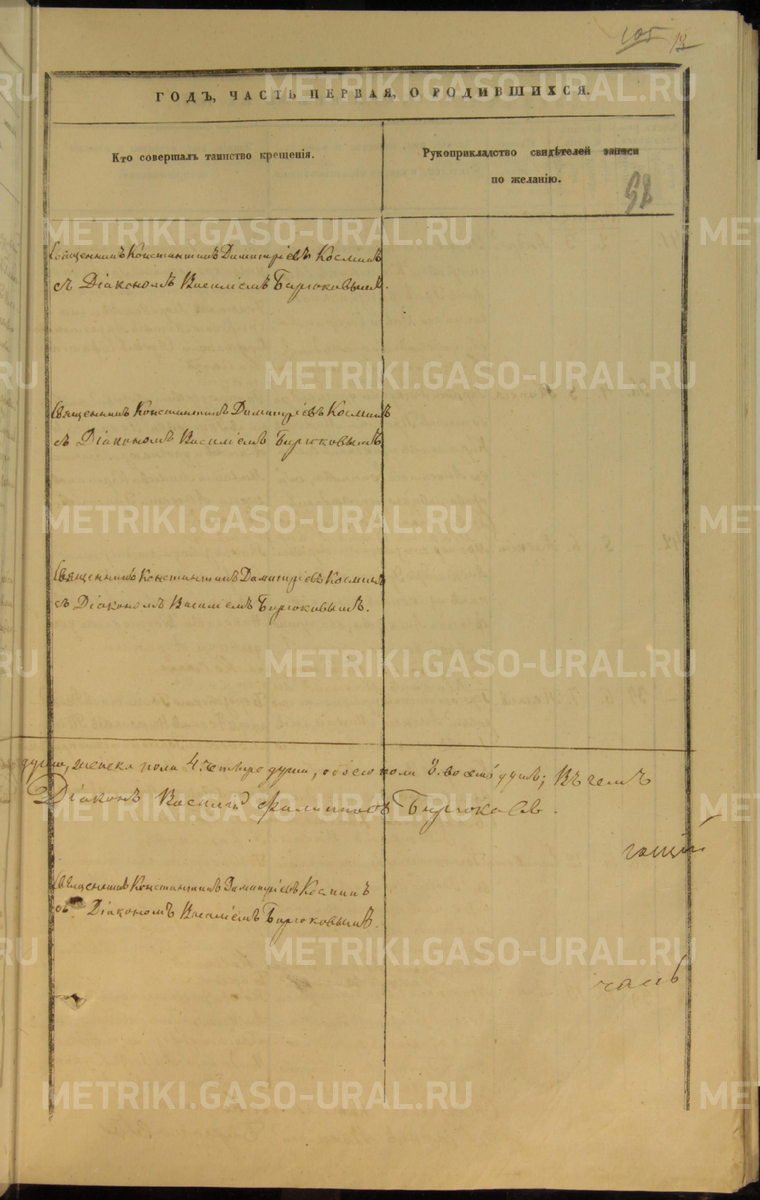 105
ГОДЪ, ЧАСТЬ ПЕРВАЯ, О РОДИВШИХСЯ.
Кто совершалъ таинство крещенія.
Рукоприкладство свидѣтелей записи
по желанію.
98
Священникъ Константинъ Димитріевъ Космин
съ Діакономъ Василіемъ Бирюковымъ.
Священникъ Константинъ Димитріевъ Космин
съ Діакономъ Василіемъ Бирюковымъ
Священникъ Константинъ Димитріевъ Космин
съ Діакономъ Василіемъ Бирюковымъ.
души, женска пола 4 четыре души, обоего пола 8 восемь душъ; Въ чемъ
Діаконъ Василій Филиппов Бирюковъ.
Священникъ Константинъ Димитріевъ Космин
съ Діакономъ Василіемъ Бирюковымъ.
METRIKI.GASO-URAL.RU